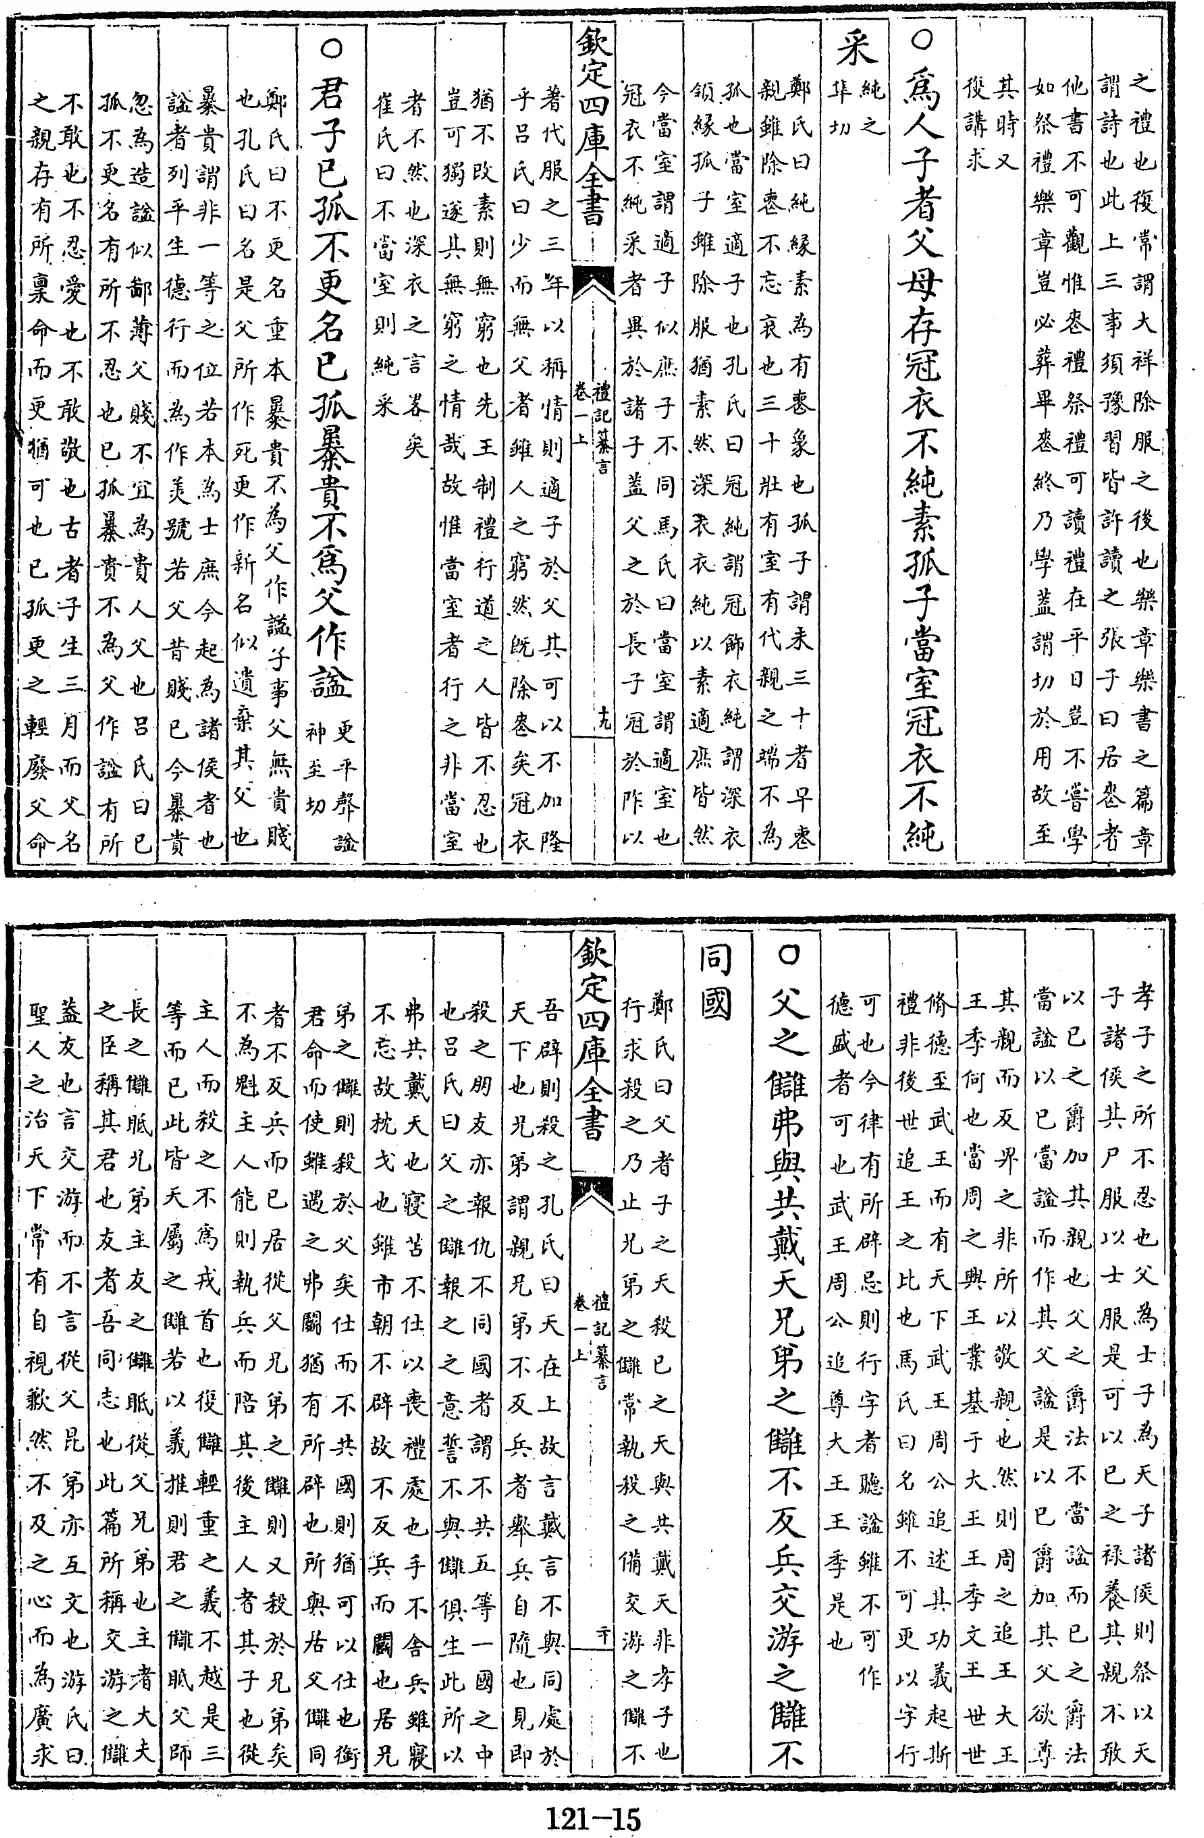 之禮也復常謂大祥除服之後也樂章樂書之篇章
謂詩也此上三事須豫習皆許讀之張子曰居喪者
他書不可觀惟喪禮祭禮可讀禮在平日豈不嘗學
如祭禮樂章豈必葬畢喪終乃學蓋謂切於用故至
其時又
復講求
○為人子者父母存冠衣不純素孤子當室冠衣不純
采
純之
隼切
鄭氏曰純緣素為有喪象也孤子謂未三十者早喪
親雖除喪不忘哀也三十壯有室有代親之端不為
孤也當室適子也孔氏曰冠純謂冠飾衣純謂深衣
領緣孤子雖除服猶素然深衣衣純以素適庶皆然
今當室謂適子似庶子不同馬氏曰當室謂適室也
冠衣不純采者異於諸子蓋父之於長子冠於阼以
欽定四庫全書
禮記纂言
卷一上
十九
著代服之三年以稱情則適子於父其可以不加隆
乎呂氏曰少而無父者雖人之窮然既除喪矣冠衣
猶不改素則無窮也先王制禮行道之人皆不忍也
豈可獨遂其無窮之情哉故惟當室者行之非當室
者不然也深衣之言畧矣
崔氏曰不當室則純采
○君子已孤不更名已孤暴貴不為父作諡
更平聲諡
神至切
鄭氏曰不更名重本暴貴不為父作諡子事父無貴賤
也孔氏曰名是父所作死更作新名似遺棄其父也
暴貴謂非一等之位若本為士庶今起為諸侯者也
諡者列平生德行而為作美號若父昔賤已今暴貴
忽為造諡似鄙薄父賤不宜為貴人父也呂氏曰已
孤不更名有所不忍也已孤暴貴不為父作諡有所
不敢也不忍愛也不敢敬也古者子生三月而父名
之親存有所稟命而更猶可也已孤更之輕廢父命
孝子之所不忍也父為士子為天子諸侯則祭以天
子諸侯其尸服以士服是可以已之祿養其親不敢
以已之爵加其親也父之爵法不當諡而已之爵法
當諡以已當諡而作其父諡是以已爵加其父欲尊
其親而反畀之非所以敬親也然則周之追王大王
王季何也當周之興王業基于大王王季文王世世
脩德至武王而有天下武王周公追述其功義起斯
禮非後世追王之比也馬氏曰名雖不可更以字行
可也今律有所辟忌則行字者聽諡雖不可作
德盛者可也武王周公追尊大王王季是也
○父之讎弗與共戴天兄弟之讎不反兵交游之讎不
同國
鄭氏曰父者子之天殺已之天與共戴天非孝子也
行求殺之乃止兄弟之讎常執殺之備交游之讎不
欽定四庫全書
禮記纂言
卷一上
二十
吾辟則殺之孔氏曰天在上故言戴言不與同處於
天下也兄弟謂親兄弟不反兵者舉兵自隨也見即
殺之朋友亦報仇不同國者謂不共五等一國之中
也呂氏曰父之讎報之之意誓不與讎俱生此所以
弗共戴天也寢苫不仕以喪禮處也手不舍兵雖寢
不忘故枕戈也雖市朝不辟故不反兵而鬬也居兄
弟之讎則殺於父矣仕而不共國則猶可以仕也銜
君命而使雖遇之弗鬬猶有所辟也所與居父讎同
者不反兵而已居從父兄弟之讎則又殺於兄弟矣
不為魁主人能則執兵而陪其後主人者其子也從
主人而殺之不為戎首也復讎輕重之義不越是三
等而已此皆天屬之讎若以義推則君之讎眡父師
長之讎眡兄弟主友之讎眡從父兄弟也主者大夫
之臣稱其君也友者吾同志也此篇所稱交游之讎
蓋友也言交游而不言從父昆弟亦互文也游氏曰
聖人之治天下常有自視歉然不及之心而為廣求
121-15